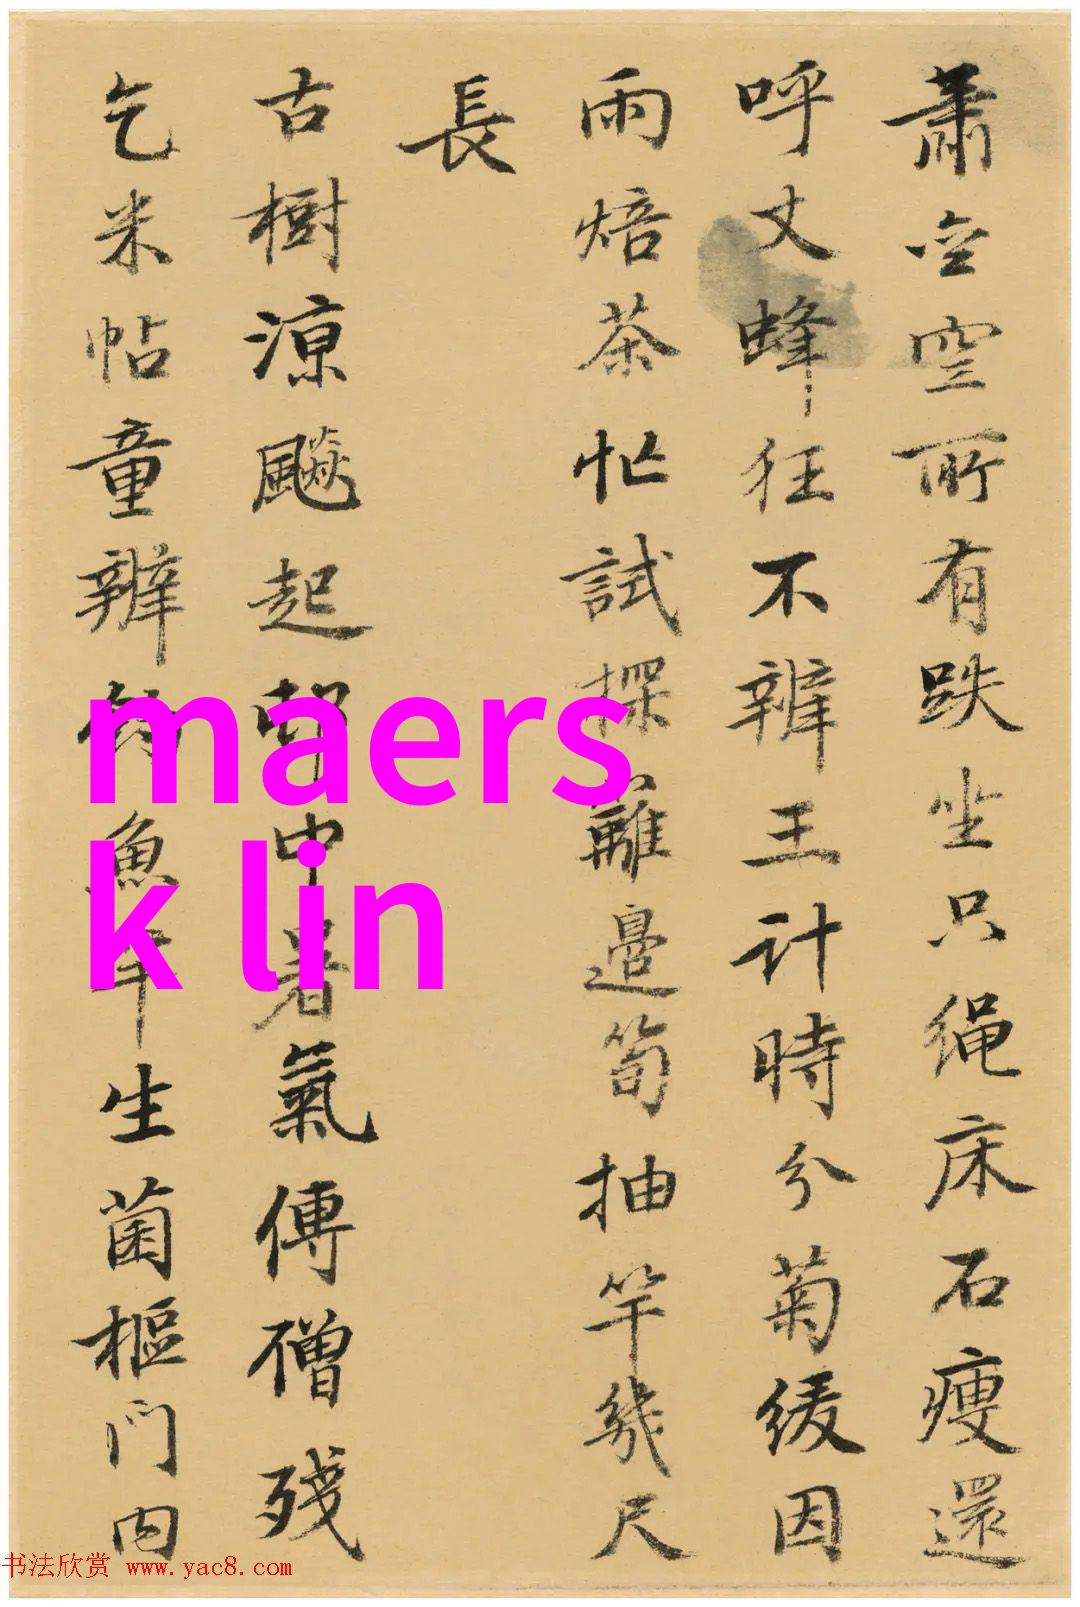 肅空所有跌坐只绳床石瘦還
呼丈蜂狂不辨王计時分菊缓因
雨焙茶忙試探籬邊筍抽竿幾尺
長
古樹涼飈起中暑氣傳僧残
乞米帖童辨魚生菌樞門内
maers
k lin
书法欣赏 www.yac8.com